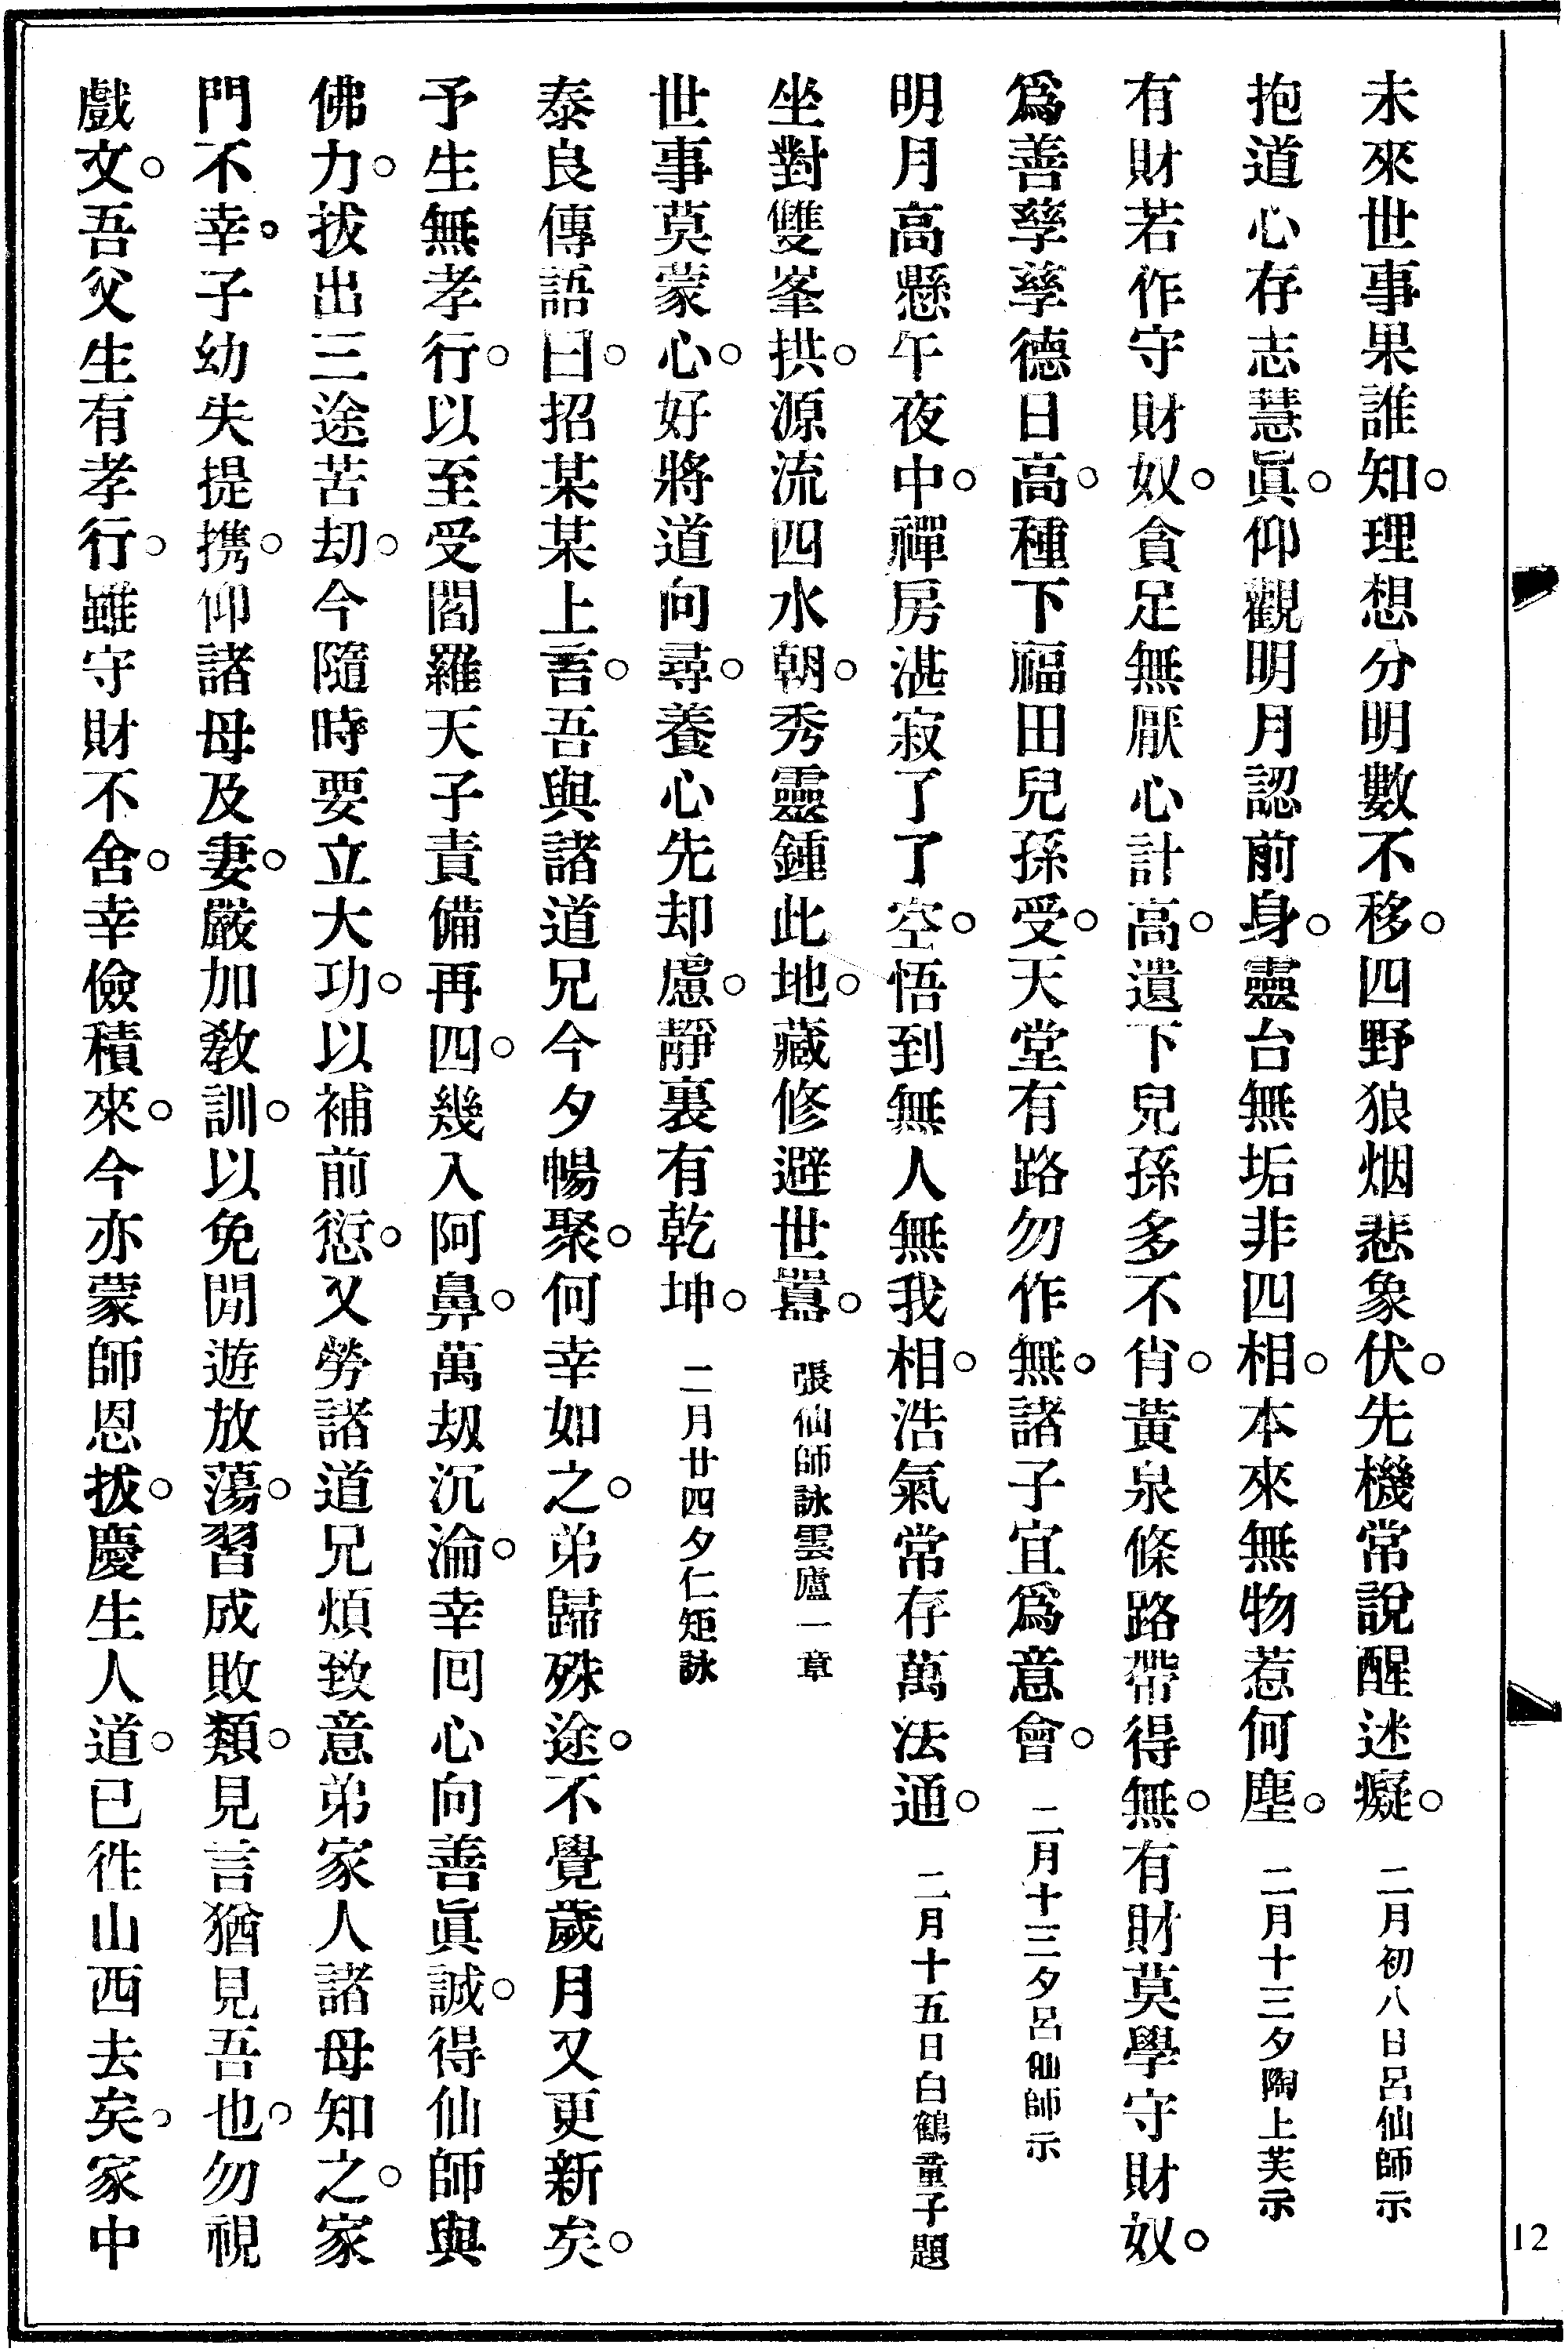 未來世事果誰知。理想分明數不移。四野狼烟悲象伏。先機常說醒迷癡。 二月初八日呂仙師示
抱道心存志慧眞。仰觀明月認前身。靈台無垢非四相。本來無物惹何塵。 二月十三夕陶上芙示
有財若作守財奴。貪足無厭心計高。遺下兒孫多不肖。黃泉條路帶得無。有財莫學守財奴。
爲善孳孳德日高。種下福田兒孫受。天堂有路勿作無。諸子宜爲意會。 二月十三夕呂仙師示
明月高懸午夜中。禪房湛寂了了空。悟到無人無我相。浩氣常存萬法通。 二月十五日白鶴童子題
坐對雙峯拱。源流四水朝。秀靈鍾此地。藏修避世囂。 張仙師詠雲廬一章
世事莫蒙心。好將道向尋。養心先却慮。靜裏有乾坤。 二月廿四夕仁矩詠
泰良傳語曰。招某某上言。吾與諸道兄今夕暢聚。何幸如之。弟歸殊途。不覺歲月又更新矣。
予生無孝行。以至受閻羅天子責備再四。幾入阿鼻。萬刼沉淪。幸囘心向善眞誠。得仙師與
佛力。拔出三途苦刧。今隨時要立大功。以補前愆。又勞諸道兄煩致意弟家人諸母知之。家
門不幸。子幼失提携。仰諸母及妻。嚴加敎訓。以免閒遊放蕩。習成敗類。見言猶見吾也。勿視
戲文。吾父生有孝行。雖守財不舍。幸儉積來。今亦蒙師恩拔。慶生人道。已徃山西去矣。家中
12